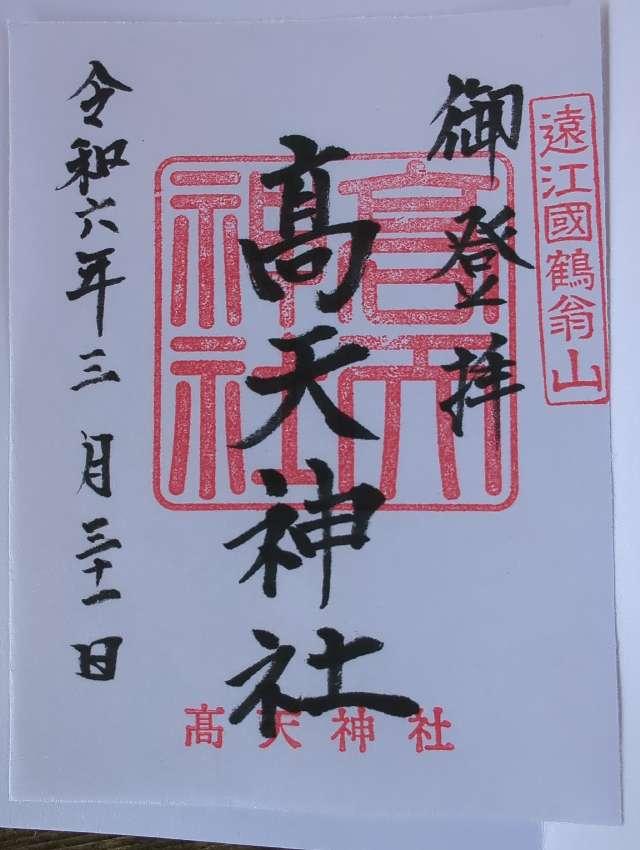 遠江國鶴翁山
御登拝
髙天神社
髙天神社
令和六年三月三十一日
髙天神社